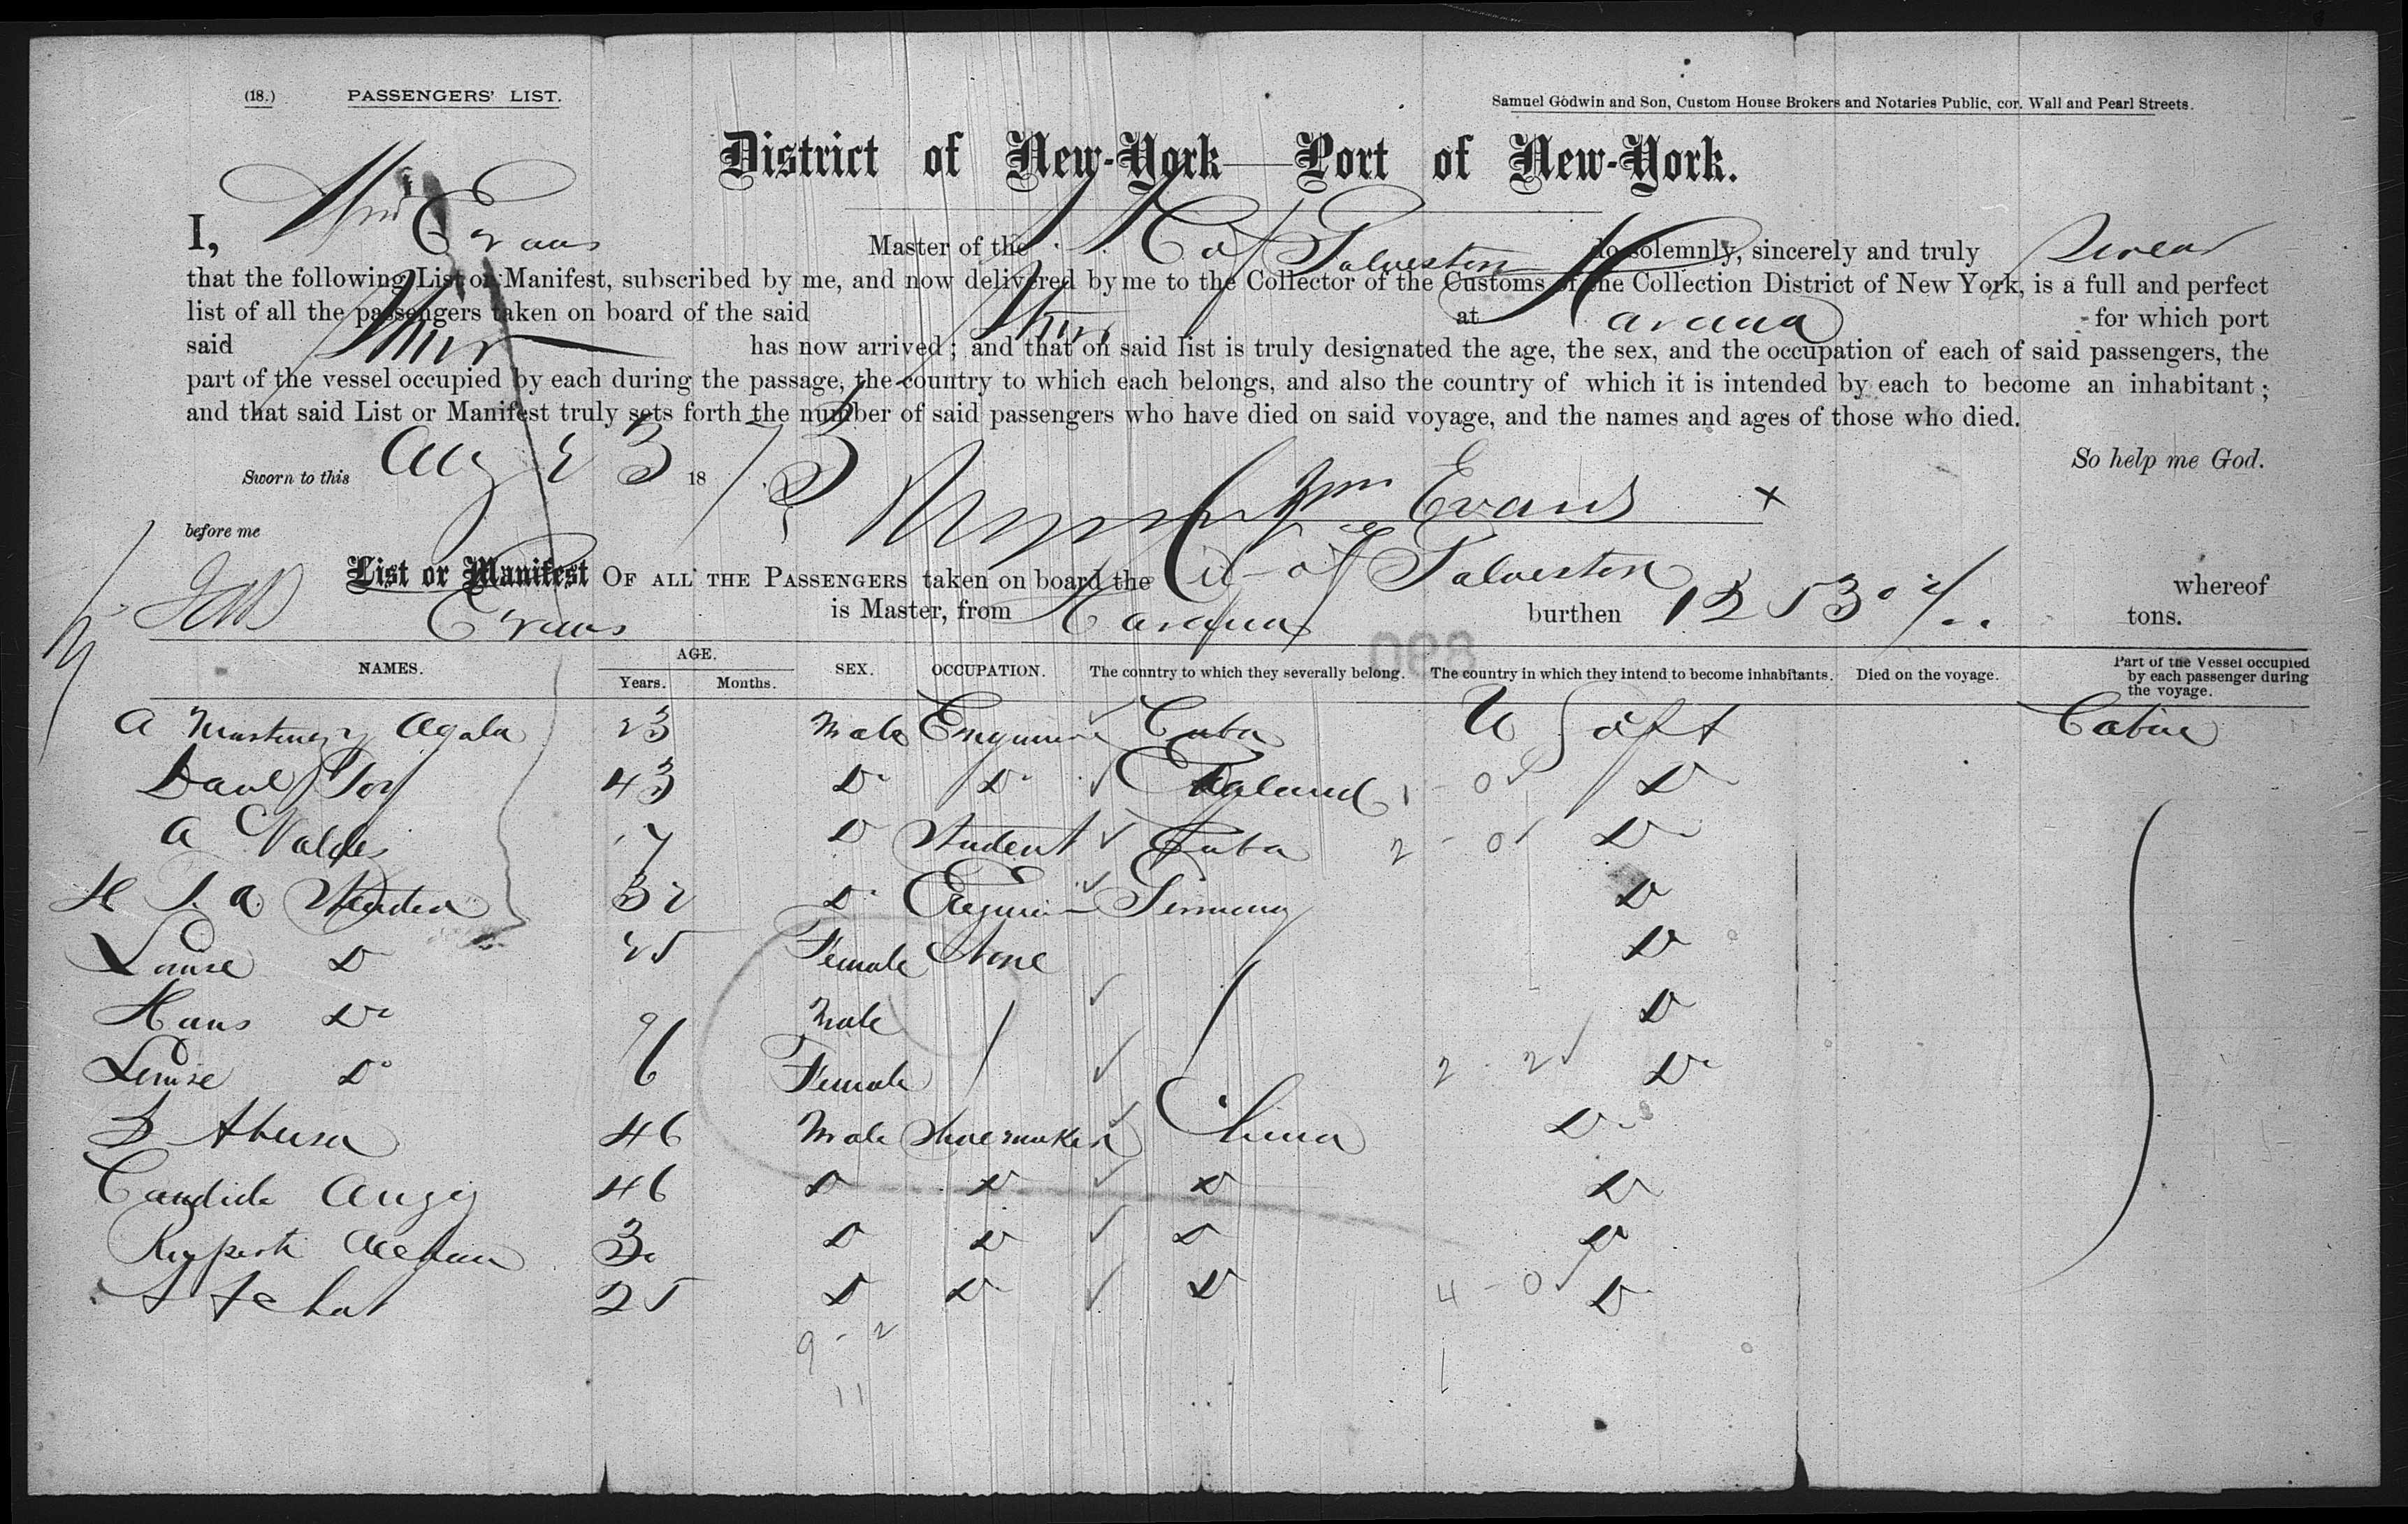 (18.) PASSENGERS' LIST.
Samuel Godwin and Son, Custom House Brokers and Notaries Public, cor. Wall and Pearl Streets.
District of New-York—Port of New-York.
I, Evans Master of the C of Galveston do solemnly, sincerely and truly swear
that the following List or Manifest, subscribed by me, and now delivered by me to the Collector of the Customs of the Collection District of New York, is a full and perfect
list of all the passengers taken on board of the said Str at Havana for which port
said Str has now arrived; and that on said list is truly designated the age, the sex, and the occupation of each of said passengers, the
part of the vessel occupied by each during the passage, the country to which each belongs, and also the country of which it is intended by each to become an inhabitant;
and that said List or Manifest truly sets forth the number of said passengers who have died on said voyage, and the names and ages of those who died.
So help me God.
Sworn to this Aug 23 1873
Wm Evans x
before me
List or Manifest OF ALL THE PASSENGERS taken on board the Cit of Galveston whereof
Evans is Master, from Havana burthen 1253 tons.
NAMES. AGE. Years. Months. SEX. OCCUPATION. The country to which they severally belong. The country in which they intend to become inhabitants. Died on the voyage. Part of the Vessel occupied by each passenger during the voyage.
A Martinez y 23 Male Cuba U S of A Cabin
43 Do Do 1 - 0 Do
A Valdes 17 Do Student Cuba 2 - 0 Do
H 32 Do Germany Do
Louise Do 25 Female None Do
Hans Do 9 Male Do
Louise Do 6 Female 2 - 2 Do
46 Male Shoemaker China Do
Candido 46 Do Do Do Do
30 Do Do Do Do
25 Do Do Do 4 - 0 Do
9 - 2
11